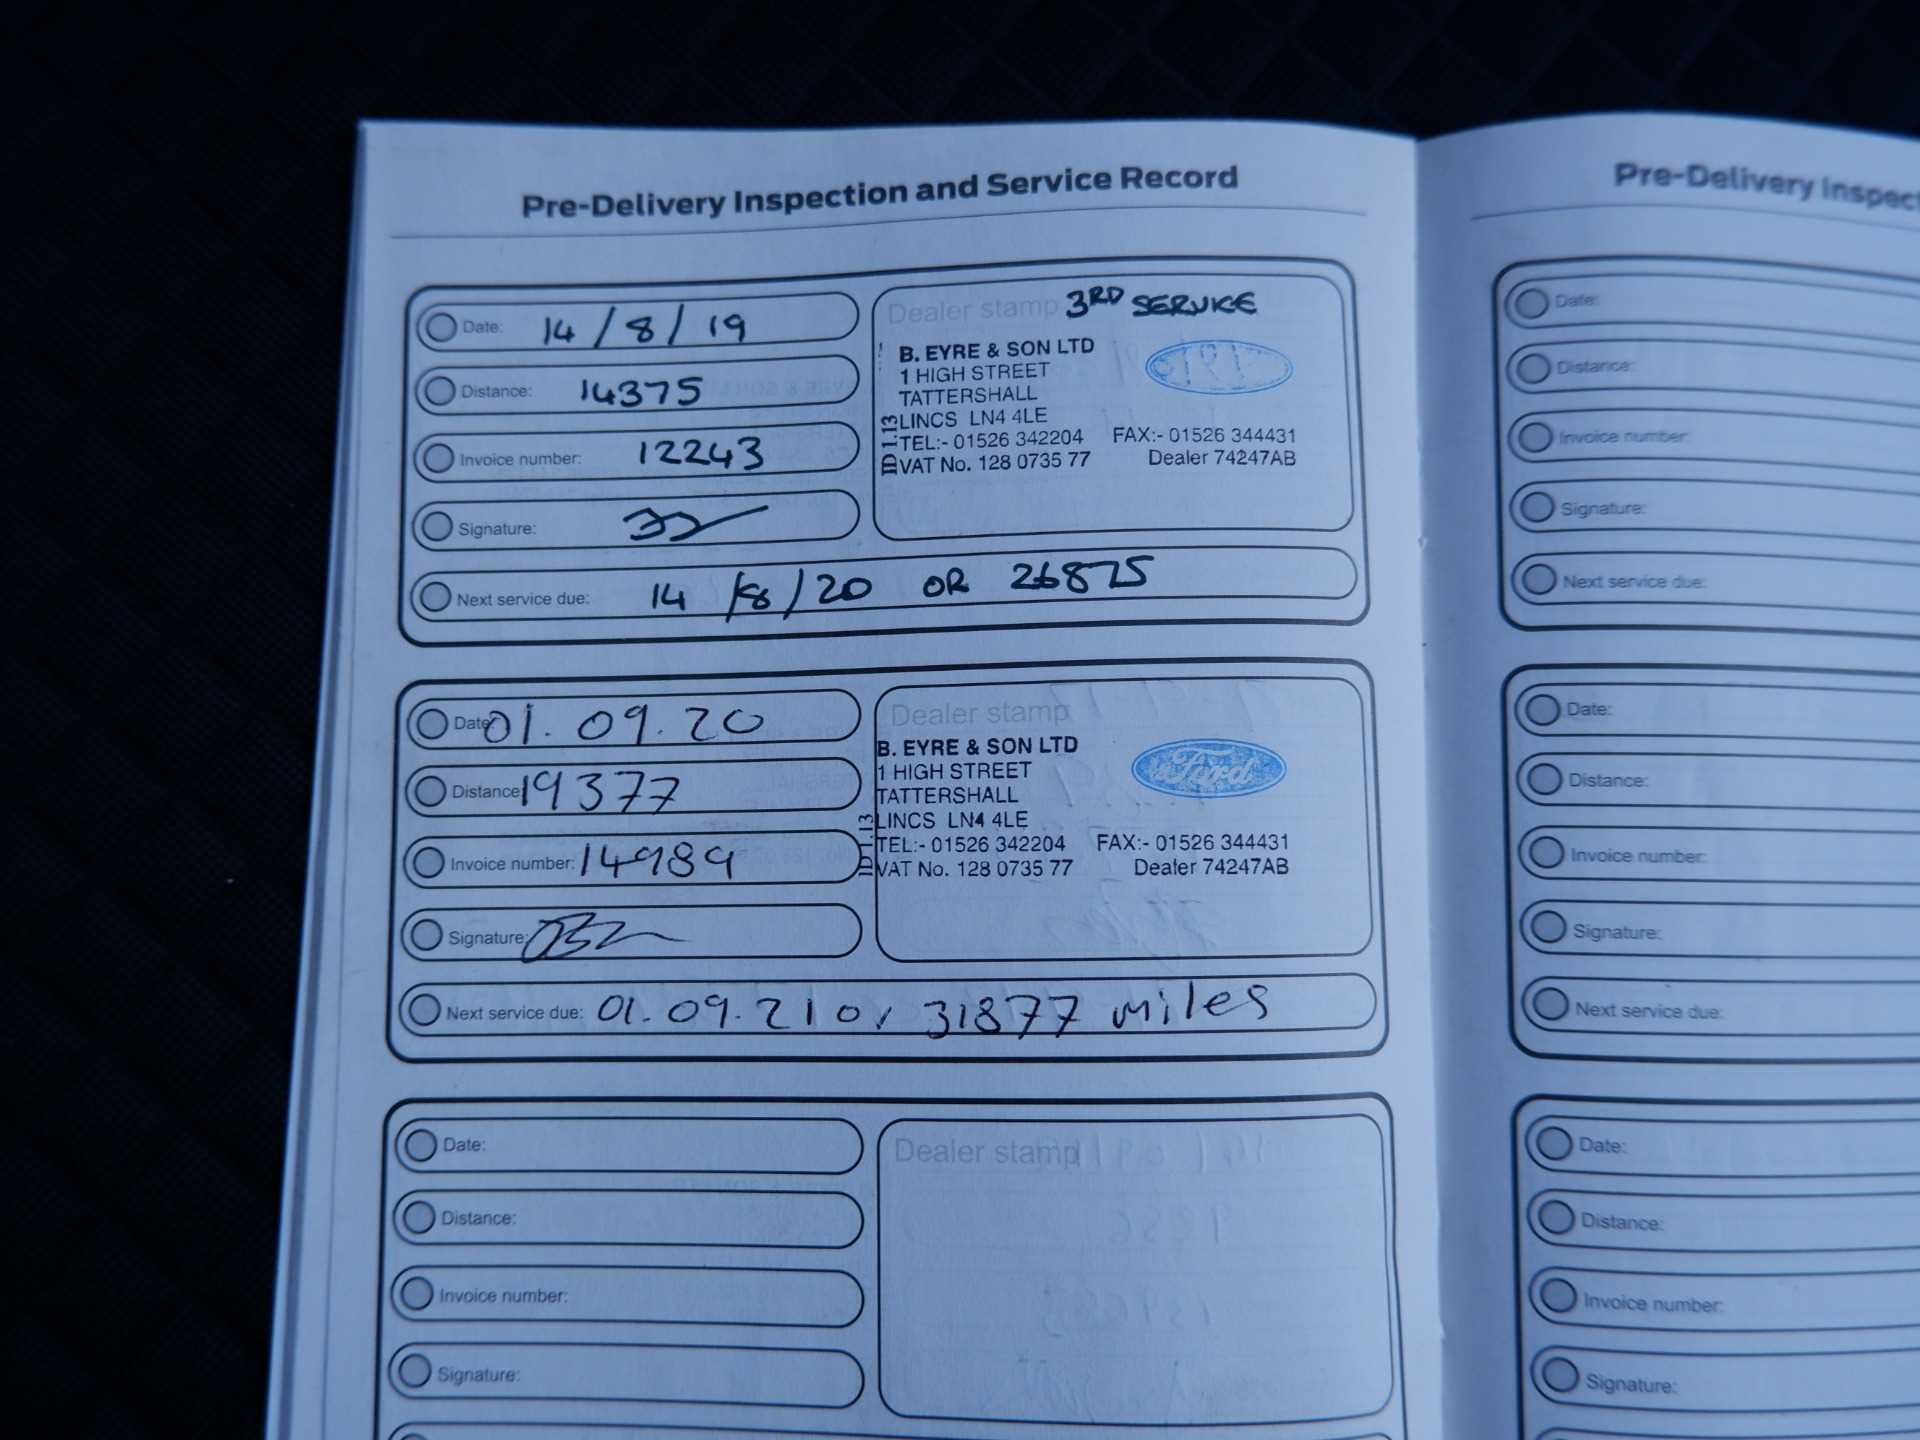 Pre-Delivery Inspection and Service Record
Date: 14/8/19
Distance: 14375
Invoice number: 12243
Signature:
Next service due: 14/8/20 OR 26875
Dealer stamp 3RD SERVICE
B. EYRE & SON LTD
1 HIGH STREET
TATTERSHALL
LINCS LN4 4LE
TEL:- 01526 342204 FAX:- 01526 344431
VAT No. 128 0735 77 Dealer 74247AB
ID 1.13
Date: 01.09.20
Distance: 19377
Invoice number: 14989
Signature:
Next service due: 01.09.21 or 31877 miles
Dealer stamp
B. EYRE & SON LTD
Ford
1 HIGH STREET
TATTERSHALL
LINCS LN4 4LE
TEL:- 01526 342204 FAX:- 01526 344431
VAT No. 128 0735 77 Dealer 74247AB
ID 1.13
Date:
Distance:
Invoice number:
Signature:
Dealer stamp
Pre-Delivery Inspect
Date:
Distance:
Invoice number:
Signature:
Next service due:
Date:
Distance:
Invoice number:
Signature:
Next service due:
Date:
Distance:
Invoice number:
Signature: